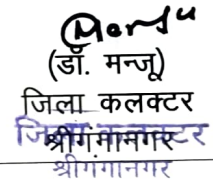 Manju
(डॉ. मन्जू)
जिला कलक्टर
श्रीगंगानगर
जिला कलक्टर
श्रीगंगानगर